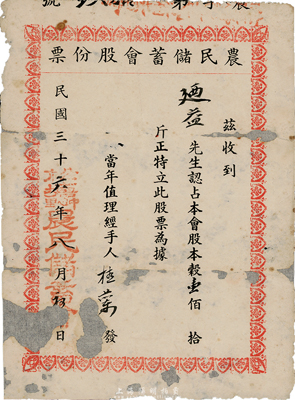 農字第 號
農民儲蓄會股份票
茲收到
廼益先生認占本會股本穀壹佰拾
斤正特立此股票為據
當年值理經手人桂萬發
民國三十六年八月 日
農民儲蓄